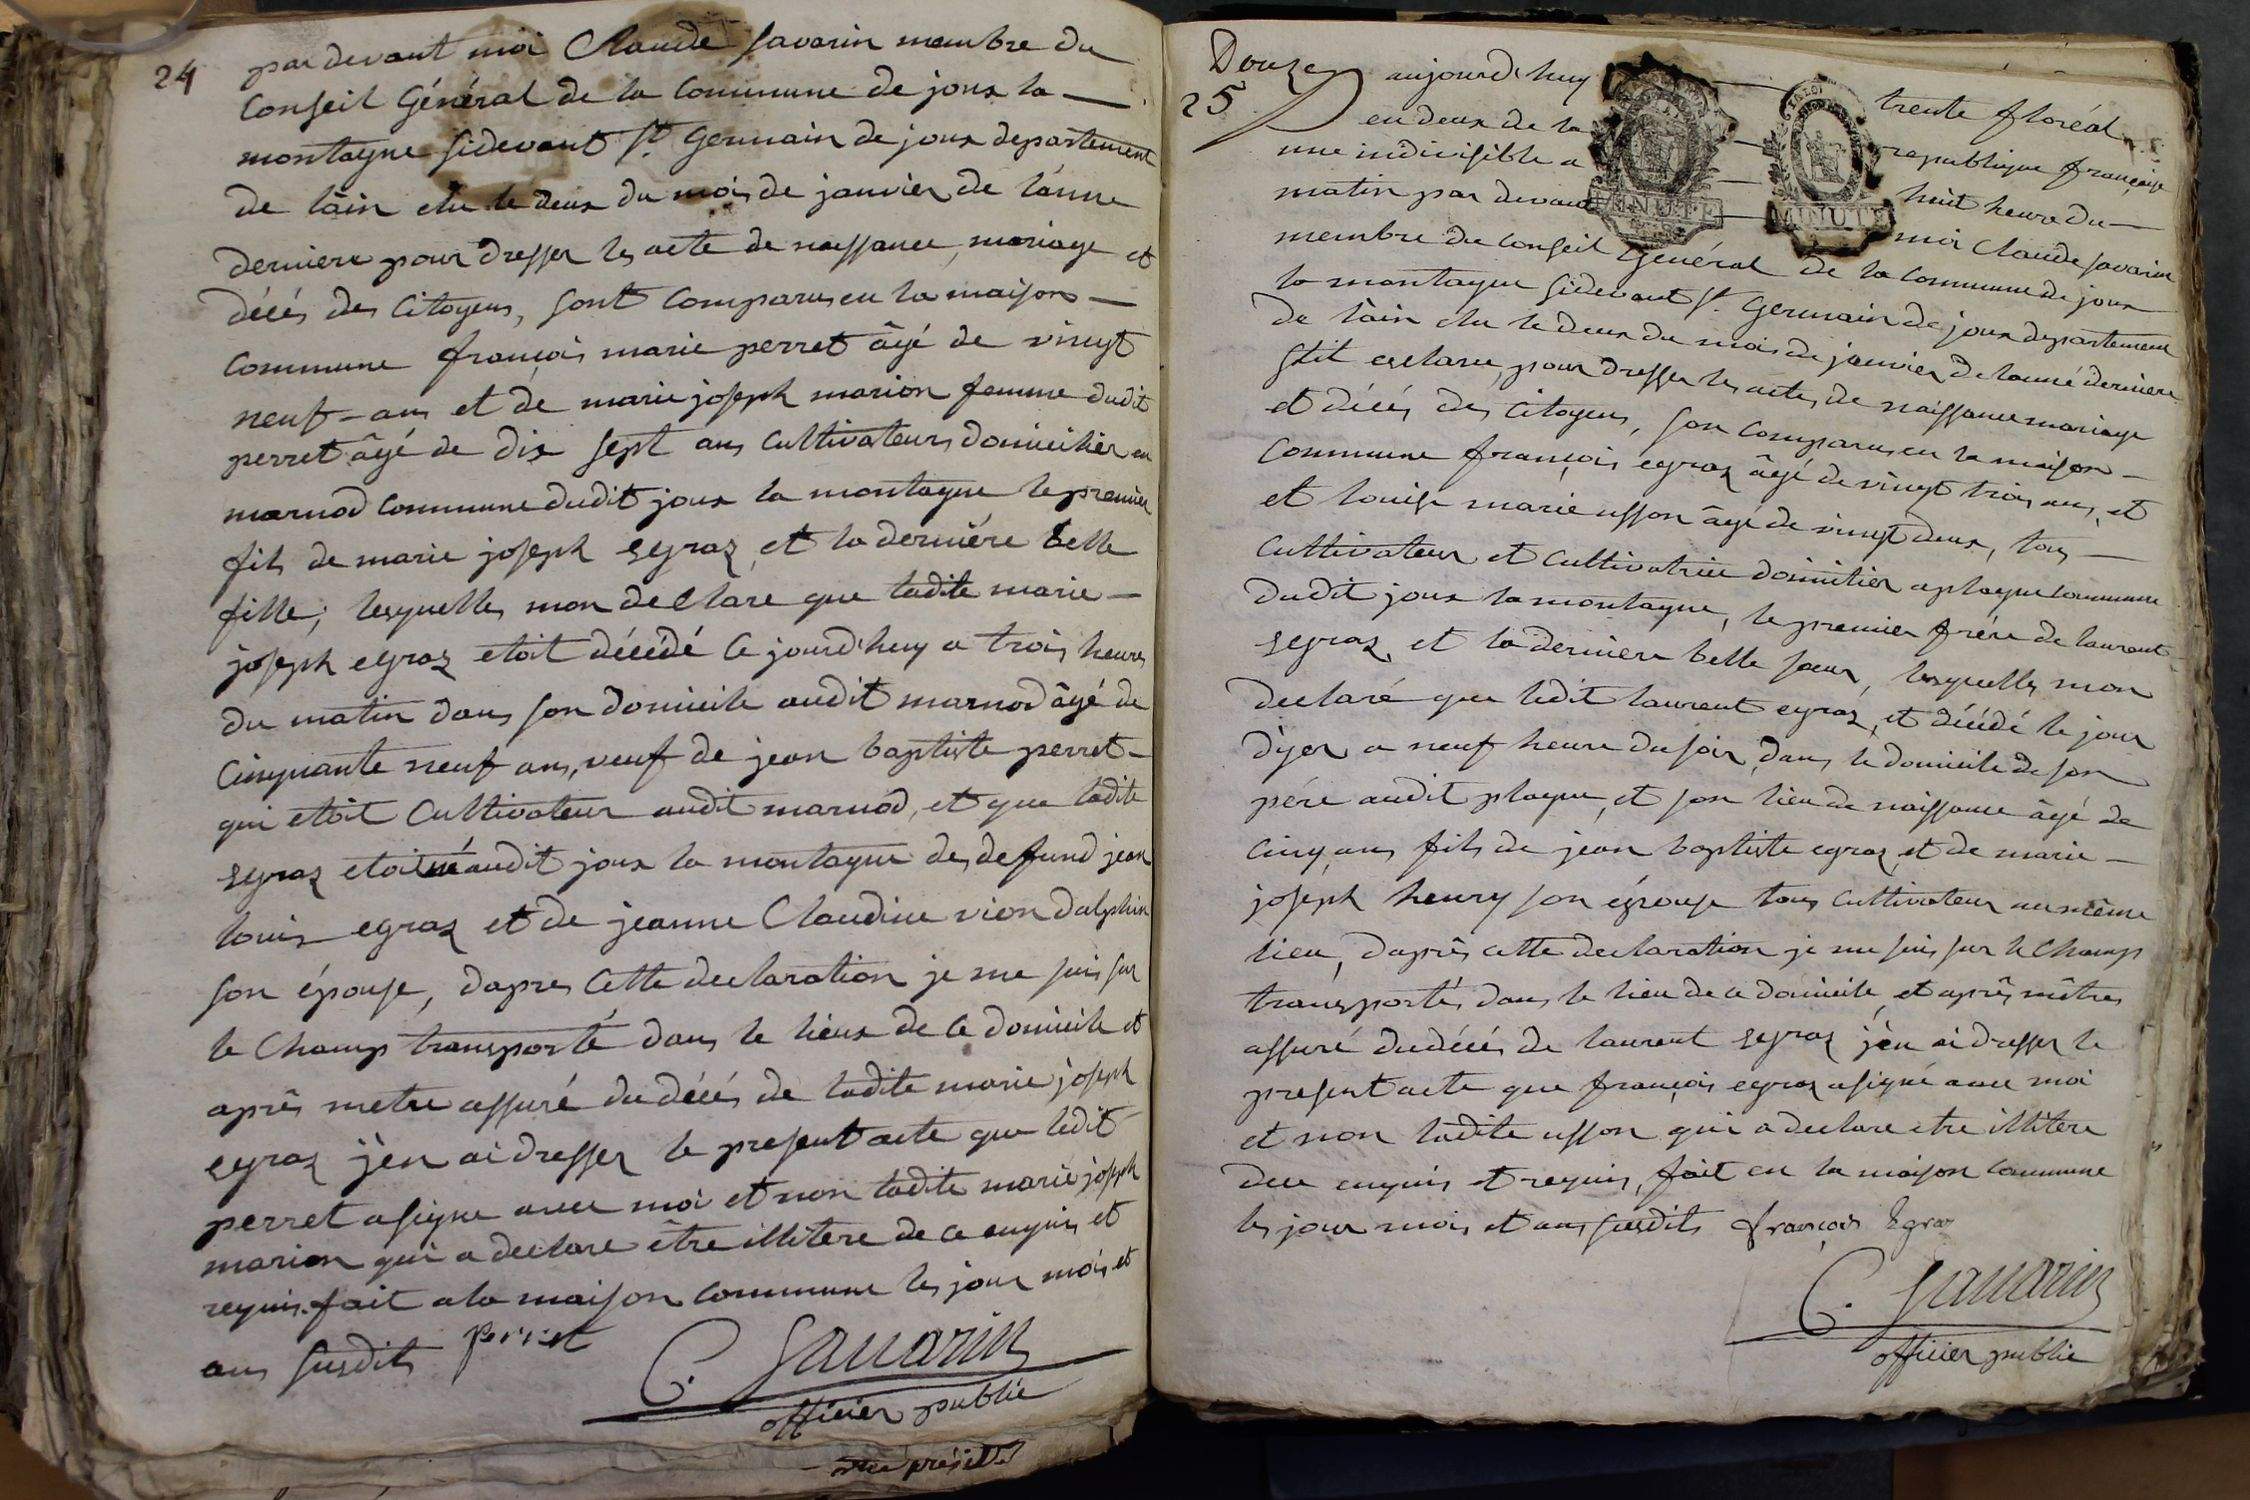 24
par devant moi Claude Savarin membre du
Conseil Général de la Commune de joux la
montagne sidevant St. Germain de joux departement
de l'ain elu le deux du mois de janvier de l'anné
derniere pour dresser les acte de naissance, mariage et
décés des Citoyens, sont Comparus en la maison
Commune françois marie perret âgé de vingt
neuf ans et de marie joseph marion femme dudit
perret âgé de dix sept ans Cultivateurs domicilier en
marnod Commune dudit joux la montagne le premier
fils de marie joseph Egraz et la derniére belle
fille, lesquelles mon declare que ladite marie
joseph egraz etoit décédé Ce jourd'huy a trois heures
du matin dans son domicile audit marnod âgé de
Cinquante neuf ans, veuf de jean baptiste perret
qui etoit Cultivateur audit marnod, et que ladite
Egraz etoit né audit joux la montagne des defund jean
louis egraz et de jeanne Claudine vion dalphin
son épouse, dapres Cette declaration je me suis sur
le Champ transporté dans le lieux de Ce domicile et
aprés metre assuré du décés de ladite marie joseph
egraz j'en ai dresser le present acte que ledit
perret a signe avec moi et non ladite marie joseph
marion qui a declare être illitere de ce enquis et
requis. fait a la maison Commune les jour mois et
ans susdits perret
C. Savarin
officier public
Douze
25
aujourd'huy trente floréal
en deux de la republique française
une indivisible a huit heure du
matin par devant moi Claude Savarin
MINUTE MINUTE
membre du Conseil Général de la Commune de joux
la montagne sidevant St. Germain de joux departement
de l'ain elu le deux du mois de janvier de lanné derniere
pour dresser les actes de naissance mariage
et décés des Citoyens, son Comparus en la maison
Commune françois egraz âgé de vingt trois ans, et
et louise marie usson âgé de vingt deux, tous
Cultivateur et Cultivatrice domicilier a plagne Commune
dudit joux la montagne, le premier frére de laurent
Egraz, et la derniere belle sœur, lesquelles mon
declaré que ledit laurent egraz, et décédé le jour
d'yer a neuf heure du soir, dans le domicile de son
pére audit plagne, et son lieu de naissance âgé de
Cinq ans fils de jean baptiste egraz et de marie
joseph henry son épouse tous Cultivateur au même
lieu, daprés cette declaration je me suis sur le Champ
transportés dans le lieu de ce domicile et aprés mêtres
assuré du décés de laurent Egraz j'en ai dresser le
present acte que françois egraz a signé avec moi
et non ladite usson qui a declare etre illitere
dece enquis et requis, fait en la maison Commune
les jour mois et ans susdits françois Egraz
C. Savarin
officier public